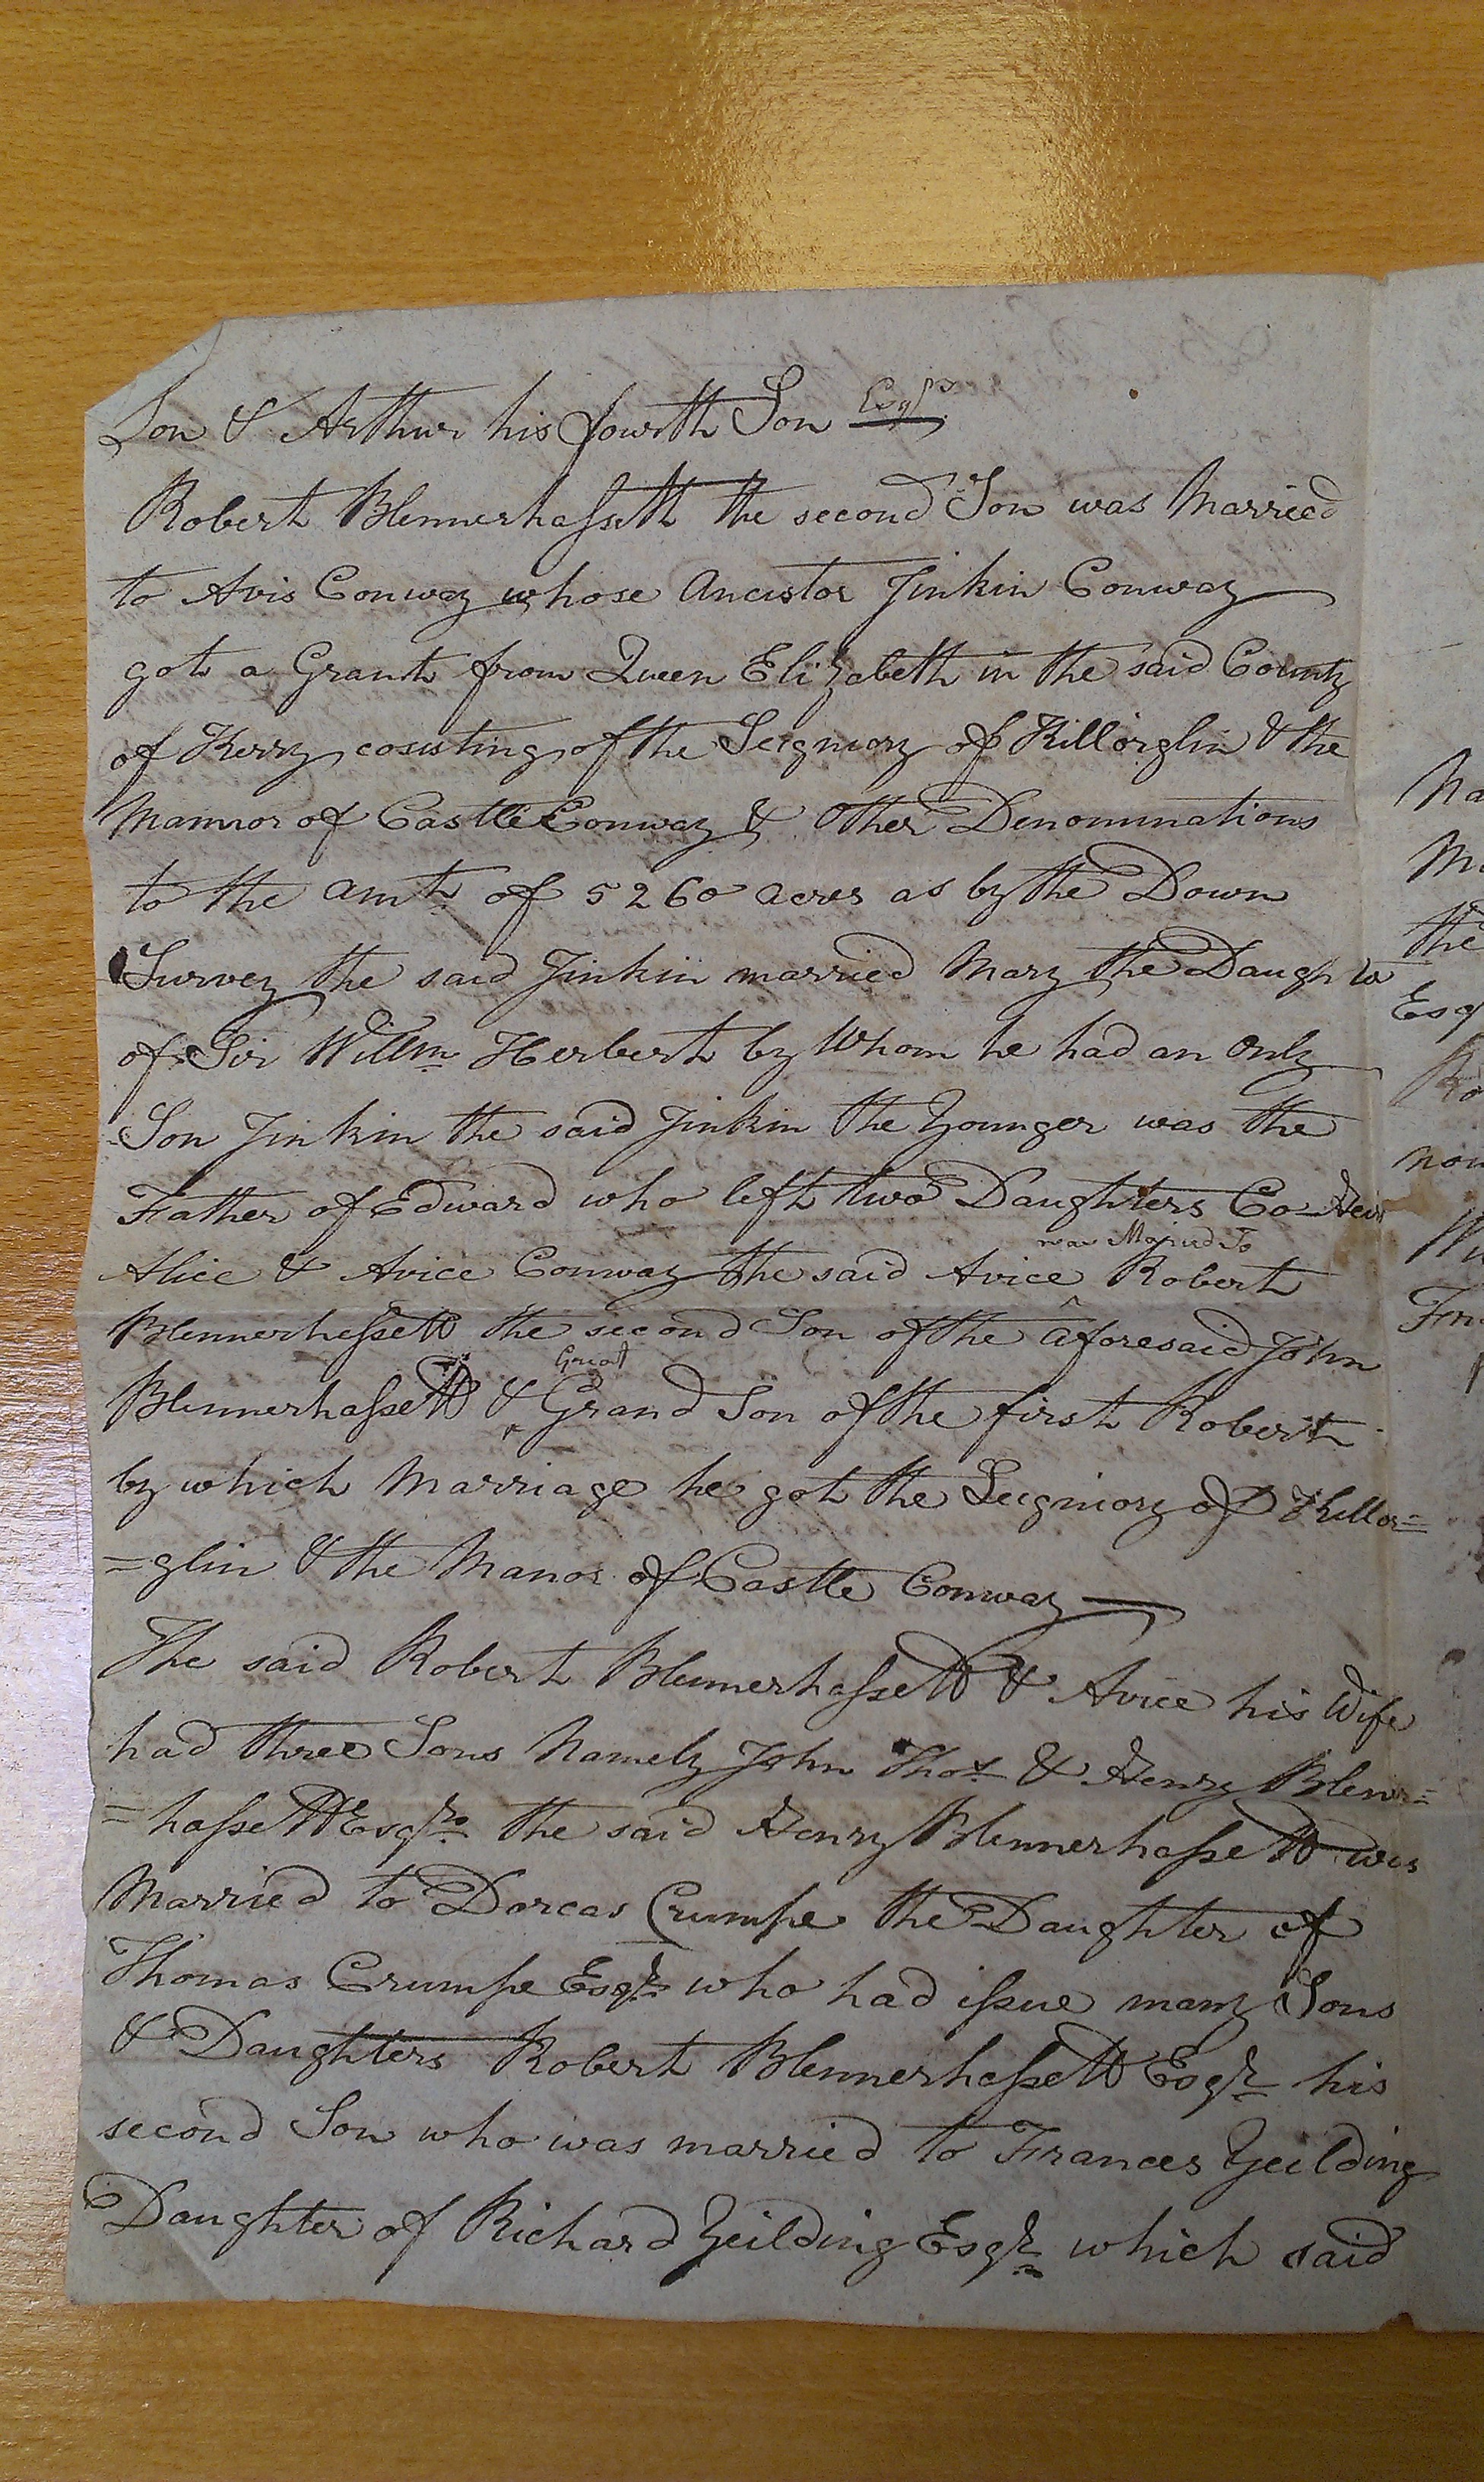 Son & Arthur his fourth Son Esqrs.
Robert Blennerhassett the second Son was Married
to Avis Conway whose Ancistor Jinkin Conway
got a Grant from Queen Elizabeth in the said County
of Kerry cosisting of the Seigniory of Killorglin & the
Mannor of Castle Conway & Other Denominations
to the amt. of 5260 acres as by the Down
Survey the said Jinkin married Mary the Daughter
of Sir Willm. Herbert by Whom he had an Only
Son Jinkin the said Jinkin the Younger was the
Father of Edward who left two Daughters Co-Heirs
was Maried To
Alice & Avice Conway the said Avice ^ Robert
Blennerhessett the second Son of the aforesaid John
Great
Blennerhassett & ^ Grand Son of the first Robert
by which Marriage he got the Seigniory of Killor=
=glin & the Manor of Castle Conway
The said Robert Blennerhassett & Avice his Wife
had three Sons Namely John Thos. & Henry Blenr=
=hassett Esqrs. the said Henry Blennerhassett was
Married to Dorcas Crumpe the Daughter of
Thomas Crumpe Esqr. who had issue many Sons
& Daughters Robert Blennerhessett Esqr. his
second Son who was married to Frances Yeilding
Daughter of Richard Yeilding Esqr. which said
Ma
the
Esq
now